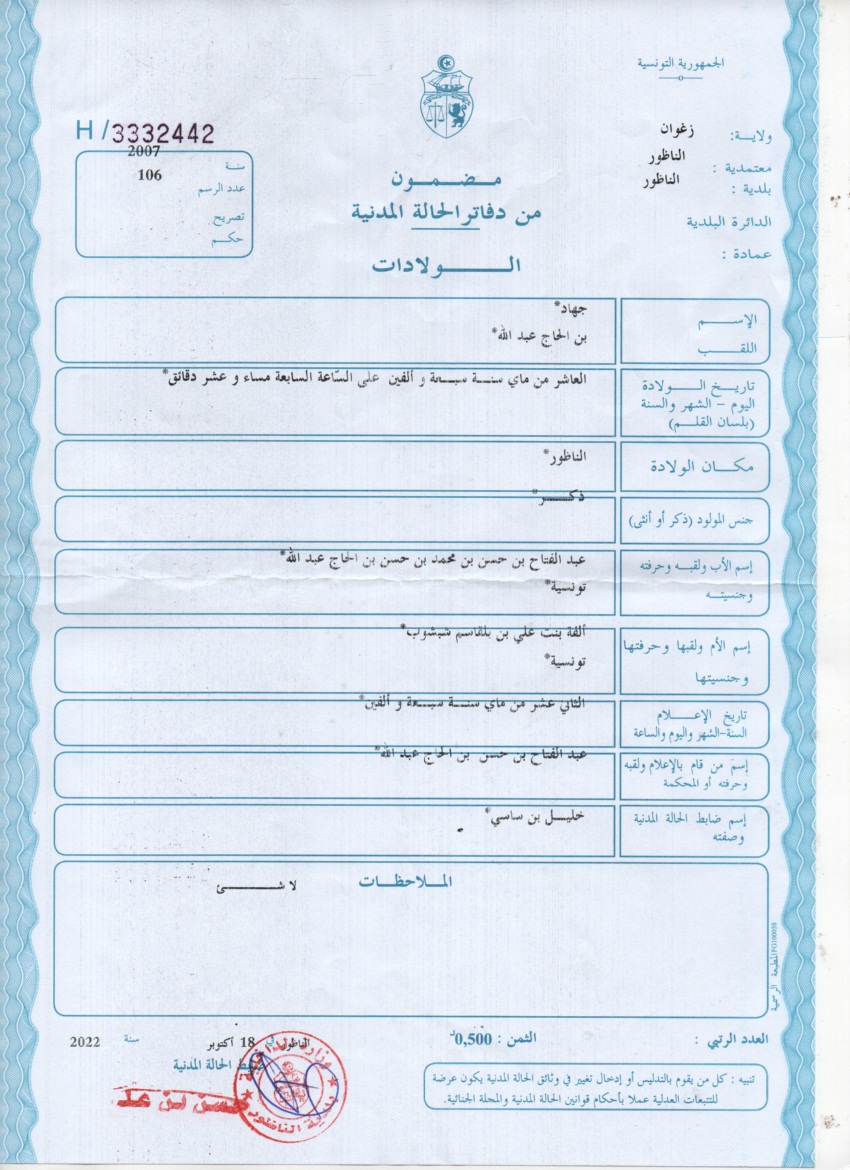 الجمهورية التونسية
ولايــة: زغوان
معتمدية : الناظور
بلدية : الناظور
الدائرة البلدية
عمادة :
H/3332442
سنة 2007
عدد الرسم 106
تصريح
حكــم
مـضـمـــون
من دفاتر الحالة المدنية
الــــــولادات
الإســـم جهاد*
اللقــب بن الحاج عبد الله*
تاريــخ الــــولادة العاشر من ماي سنــة سبـعة و ألفين على السّاعة السابعة مساء و عشر دقائق*
اليوم – الشهر والسنة
(بلسان القلــم)
مكــان الولادة الناظور*
جنس المولود (ذكر أو أنثى) ذكـــر*
إسم الأب ولقبــه وحرفته عبد الفتاح بن حسن بن محمد بن حسن بن الحاج عبد الله*
وجنسيتــه تونسية*
إسم الأم ولقبها وحرفتها ألفة بنت علي بن بلقاسم شبشوب*
وجنسيتها تونسية*
تاريخ الإعــــلام الثاني عشر من ماي سنــة سبـعة و ألفين*
السنة–الشهر واليوم والساعة
إسم من قام بالإعلام ولقبه عبد الفتاح بن حسن بن الحاج عبد الله*
وحرفته أو المحكمة
إسم ضابط الحالة المدنية خليــل بن ساسي*
وصفته
الملاحظات
لا شــــئ
المطبعة الرسمية
العدد الرتبي :
الثمن : 0,500د
الناظور في 18 أكتوبر سنة 2022
ضابط الحالة المدنية
تنبيه : كل من يقوم بالتدليس أو إدخال تغيير في وثائق الحالة المدنية يكون عرضة
للتتبعات العدلية عملا بأحكام قوانين الحالة المدنية والمجلة الجنائية.
وزارة الداخلية
بلدية الناظور
حسن بن